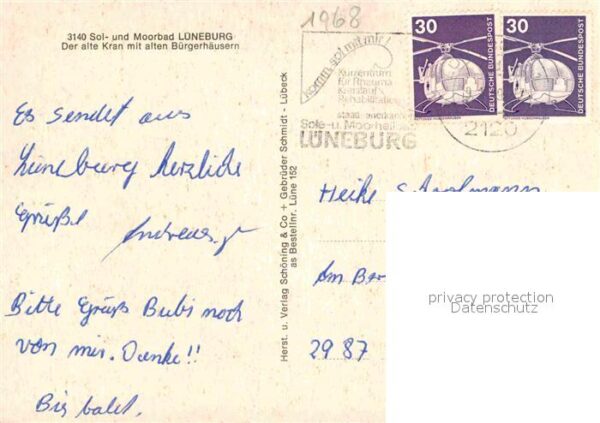 3140 Sol- und Moorbad LÜNEBURG
Der alte Kran mit alten Bürgerhäusern
Es sendet aus
Lüneburg herzliche
Grüße Andreas
Bitte Grüß Bubi noch
von mir. Danke!!
Bis bald.
Herst. u. Verlag Schöning & Co + Gebrüder Schmidt - Lübeck
as Bestellnr. Lüne 152
1968
komm, sol mit mir!
Kurzentrum
für Rheuma
Kreislauf
Rehabilitation
Sole-u. Moorheilbad
LÜNEBURG
2120
30
DEUTSCHE BUNDESPOST
30
DEUTSCHE BUNDESPOST
Heike
Am
2987
privacy protection
Datenschutz